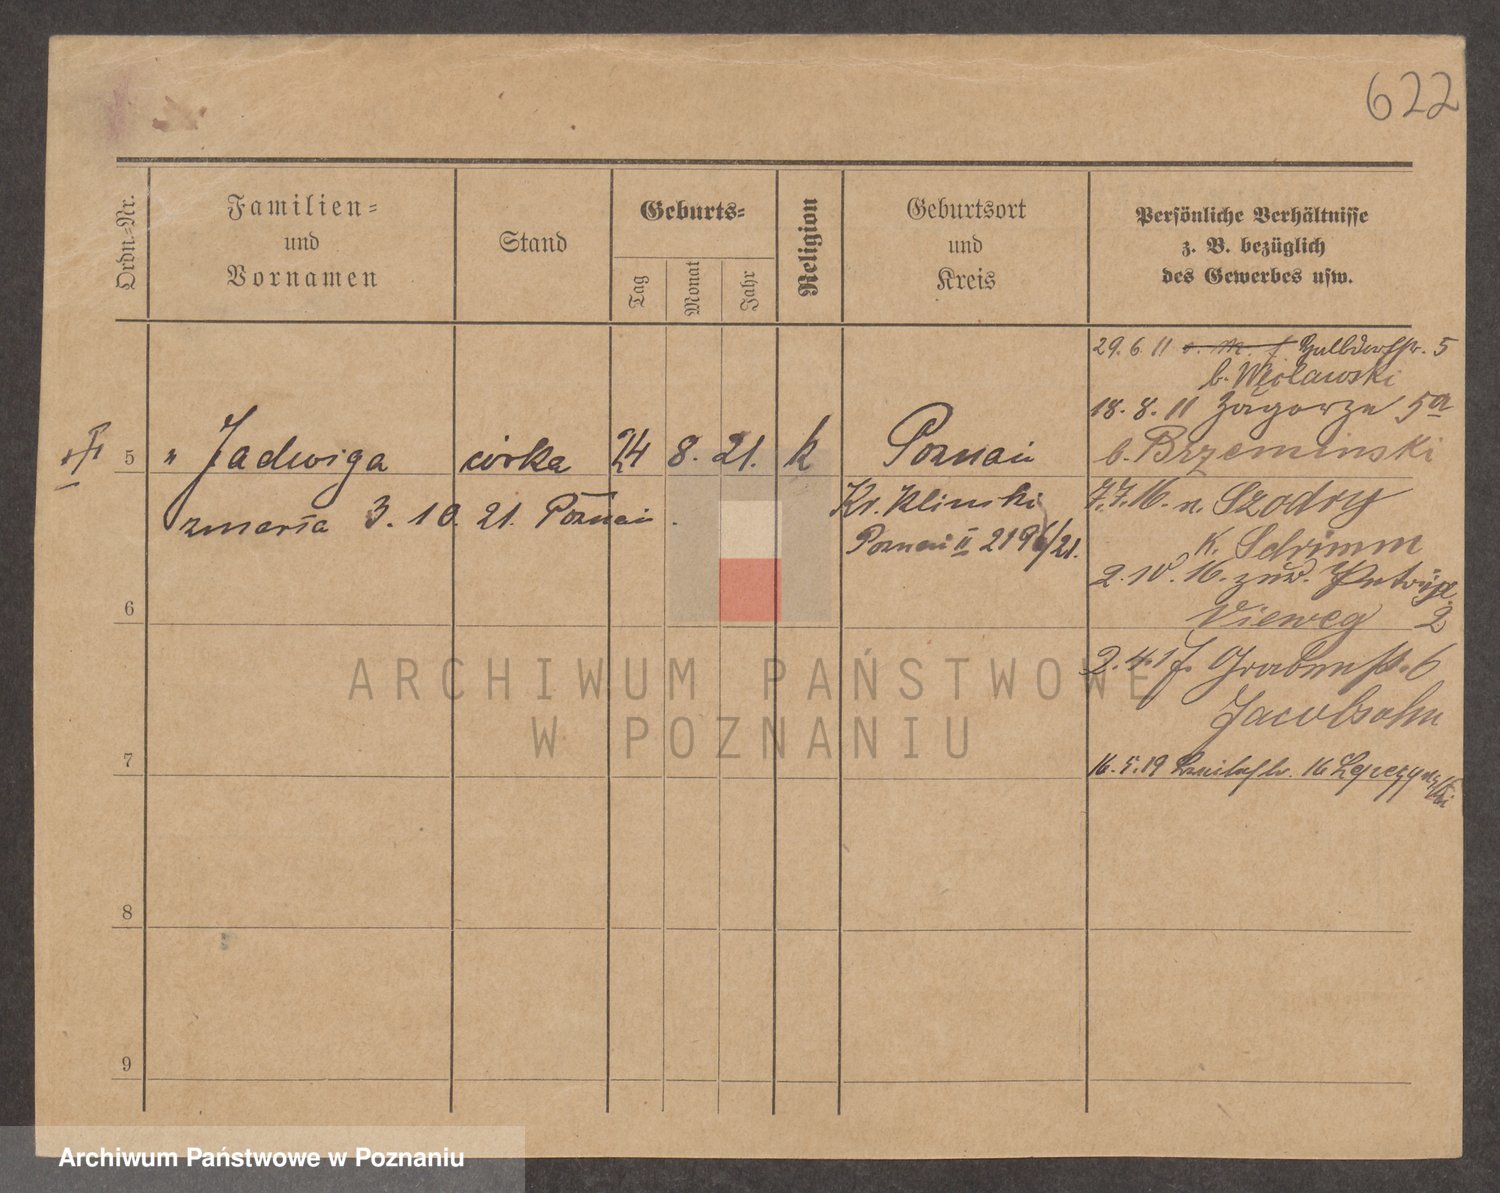 622
Ordn.-Nr.
Familien-
und
Vornamen
Stand
Geburts-
Tag
Monat
Jahr
Religion
Geburtsort
und
Kreis
Persönliche Verhältnisse
z. B. bezüglich
des Gewerbes usw.
29. 6. 11 5
b.
18. 8. 11 Zagorze 5a
5 " Jadwiga córka 24 8. 21. k Poznań
b. Brzeminski
zmarła 3. 10. 21. Poznań.
Kr. Kliniki
Poznań II 2196/21.
7.7.16. n. Szodry
K. Schrimm
2. 10. 16. zur.
6
Vieweg 2
2. 4. 17. Grabenstr. 6
Jacobsohn
7
16. 5. 19 16
8
9
ARCHIWUM PAŃSTWOWE
W POZNANIU
Archiwum Państwowe w Poznaniu